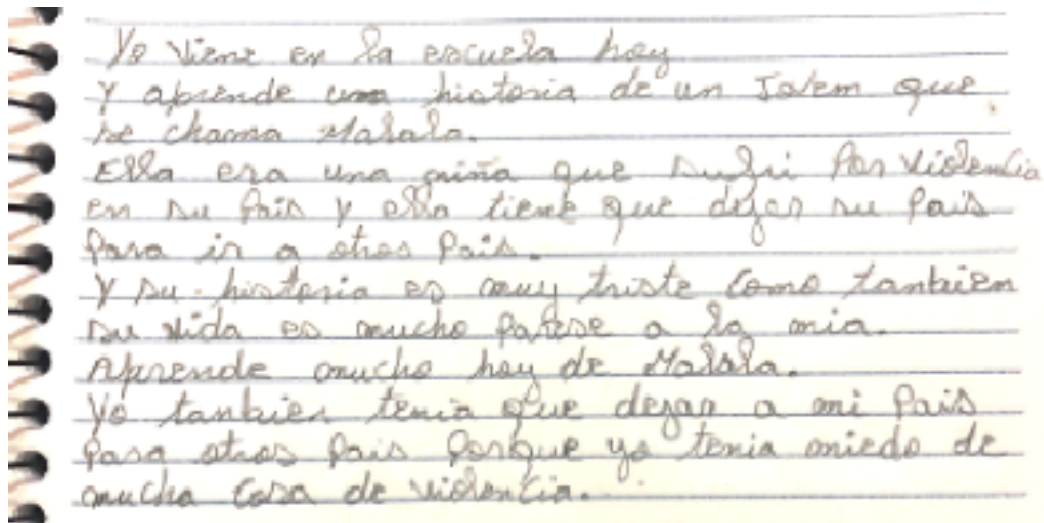 Yo viene en la escuela hoy
Y aprende una historia de un Jovem que
se chama Malala.
Ella era una niña que sufri por violencia
en su pais y ella tiene que dejar su pais
para ir a otros pais.
Y su historia es muy triste como tanbiém
su vida es mucho parese a la mia.
Aprende mucho hoy de Malala.
Yo tanbien tenia que dejar a mi pais
para otros pais porque yo tenia miedo de
mucha cosa de violencia.